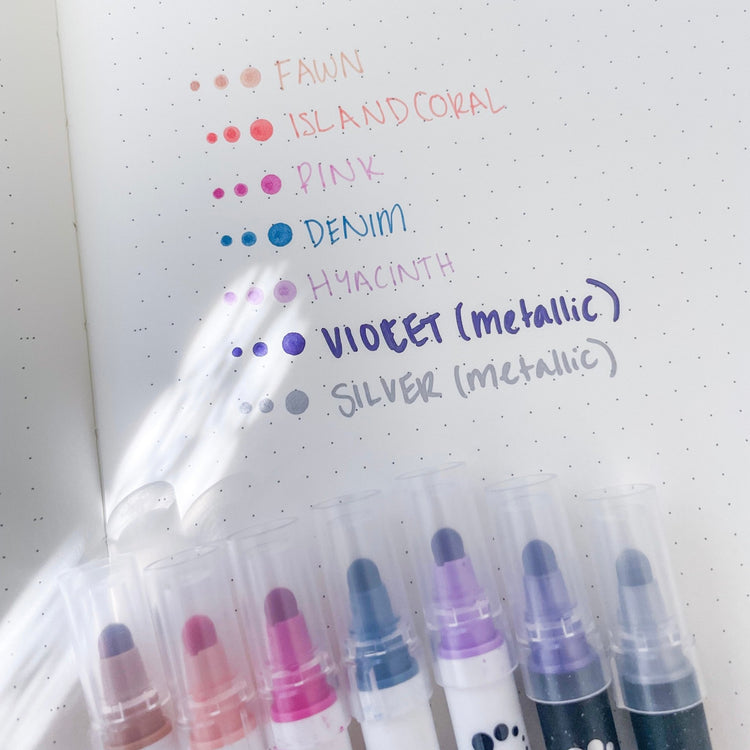 FAWN
ISLAND CORAL
PINK
DENIM
HYACINTH
VIOLET (metallic)
SILVER (metallic)